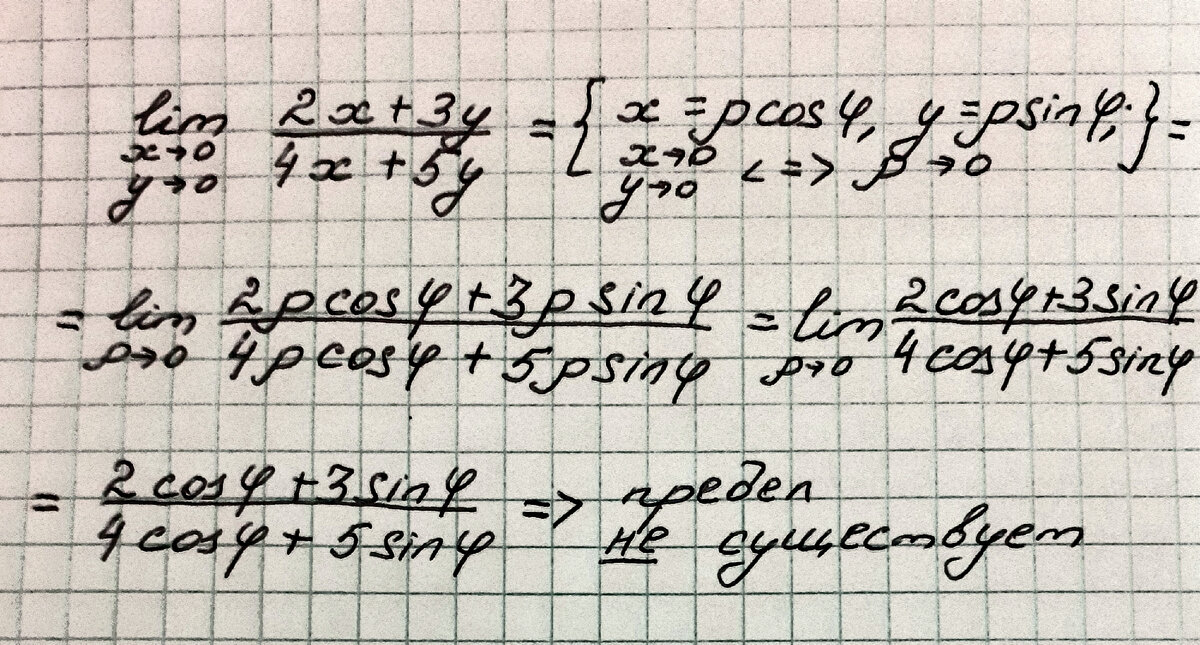 lim x→0 y→0 (2x + 3y)/(4x + 5y) = { x = ρcosφ, y = ρsinφ; x→0 y→0 <=> ρ→0 } =
= lim ρ→0 (2ρcosφ + 3ρsinφ)/(4ρcosφ + 5ρsinφ) = lim ρ→0 (2cosφ + 3sinφ)/(4cosφ + 5sinφ)
= (2cosφ + 3sinφ)/(4cosφ + 5sinφ) => предел
не существует